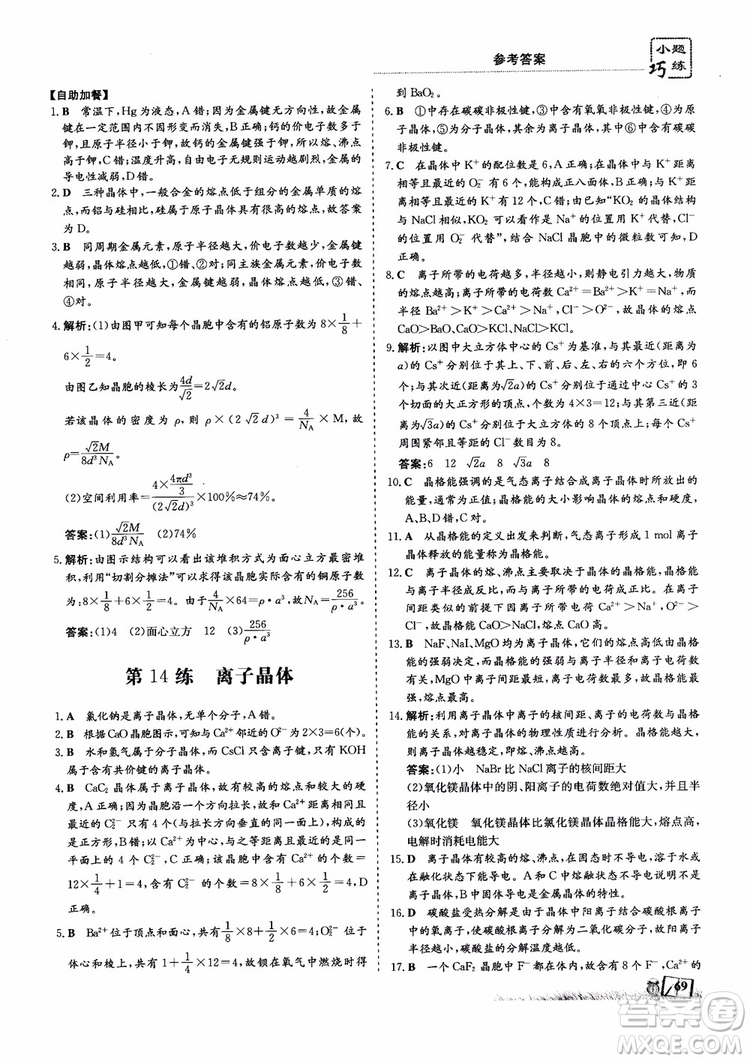 参考答案
小题
巧练
【自助加餐】
1. B 常温下，Hg为液态，A错；因为金属键无方向性，故金属键在一定范围内不因形变而消失，B正确；钙的价电子数多于钾，金属键强于钾，故钙的熔、沸点高于钾，硬度也大于钾，C错；温度升高，自由电子的能量增大，金属的导电性减弱，D错。
2. D 三种晶体中，一般合金的熔点低于组分的金属单质熔点，而铝与硅相比，硅属于原子晶体，具有较高的熔点，故答案为D。
3. B 同周期金属元素，原子半径越大，价电子数越少，金属键越弱，晶体熔点越低，①错；同主族金属元素，自上而下，价电子数相同，原子半径越大，金属键越弱，晶体熔点降低，②③正确，④错。
4. 解析：(1)由图甲可知每个晶胞中含有的铝原子数为 8×1/8+
6×1/2=4。
由图乙知晶胞的棱长为4d/√2=2√2d。
若该晶体的密度为ρ，则ρ×(2√2d)³=4/N_A×M，故
ρ=√2M/8d³N_A。
(2)空间利用率=(4×4πd³/3)/(2√2d)³×100%≈74%。
答案：(1)√2M/8d³N_A (2)74%
5. 解析：由图示结构可以看出该堆积方式为面心立方最密堆积；利用“切割分摊法”可以推出每个晶胞中含有的铜原子数为：8×1/8+6×1/2=4。由于4/N_A×64=ρ·a³，故N_A=256/ρ·a³。
答案：(1)4 (2)面心立方 12 (3)256/ρ·a³
第14练 离子晶体
1. A 氯化钠是离子晶体，无单个分子，A错。
2. B 根据CaO晶胞图示，可知与Ca²⁺邻近的O²⁻为2×3=6(个)。
3. B 水和氯气属于分子晶体，而CsCl只有离子键，只有KOH属于含有共价键的离子晶体。
4. D CaC₂晶体和MgO晶体相比，后者离子半径小，晶格能大，硬度大，A正确；因为晶胞沿一个方向拉长，故晶胞的一个平面的长与宽不相等，再由图中体心可知1个Ca²⁺周围距离最近的C₂²⁻有4个(与拉长方向垂直的同一面上)，而不是6个，B、C正确；以Ca²⁺为中心，与之等距离且最近的是同一平面上的4个Ca²⁺，C正确；图示晶胞中Ca²⁺数为
12×1/4+1=4，C₂²⁻数为8×1/8+6×1/2=4，D
正确。
5. B Ba²⁺位于顶点和面心，共有1/8×8+1/2×6=4，O₂²⁻位于体心和棱心，共有1+1/4×12=4，故钡在氧气中燃烧时得
到BaO₂。
6. B ①中存在碳碳非极性键，②中含有氧氧非极性键，④为原子晶体，其中含有硅硅非极性键，⑤为金属晶体，⑥中含有碳碳非极性键。
7. C 在晶体中K⁺的配位数是6，所以晶体中与每个K⁺距离最近的O₂⁻有6个，能够构成正八面体，B对；晶体中与K⁺距离最近的K⁺有12个，C错；根据题目中的信息“KO₂的晶体结构与NaCl相似，KO₂可以看作是Na⁺的位置用K⁺代替，Cl⁻的位置用O₂⁻代替”，所以晶体结构与NaCl晶体中的微粒数可知，D正确。
8. C 离子所带的电荷越多，半径越小，则静电引力越大，晶体的熔点越高。离子所带的电荷Ca²⁺=Ba²⁺>K⁺=Na⁺，离子半径Ba²⁺>K⁺>Ca²⁺>Na⁺，所以有晶体的熔点CaO>BaO>NaCl>KCl。
9. 解析：以图中大立方体中心的Cs⁺为基准，与其最近的(距离为a)的Cs⁺分别位于其上、下、前、后、左、右的六个方位；与其次近(距离为√2a)的Cs⁺在通过中心Cs⁺的3个切面的大正方形的顶点，个数为4×3=12；与其第三近(距离为√3a)的Cs⁺分别位于大立方体的8个顶点上；每个Cs⁺周围有8个Cl⁻。
答案：6 12 √2a 8 8
10. C 晶格能强调的是气态离子结合成离子晶体时所放出的能量，通常为正值；晶格能的大小影响晶体的熔点和硬度，A、B、D错，C对。
11. A 从晶格能的定义出发来判断，气态离子形成1 mol离子晶体释放的能量称为晶格能。
12. C 离子晶体的熔、沸点主要取决于晶体的晶格能，晶格能与离子所带电荷成正比，与离子间距离成反比。在离子间距近似的前提下因离子所带电荷Ca²⁺>Na⁺，O²⁻>Cl⁻，故熔点CaO>NaCl，又因为离子半径Ca²⁺<Ba²⁺，故CaO>BaO。
13. B NaF、NaI、MgO均为离子晶体，它们的熔点高低由离子键的强弱决定，而离子键的强弱与离子半径和离子电荷数有关，MgO中离子键最强，晶格能最大，熔点最高，而晶格能越强，熔点越高。
14. 解析：利用离子晶体中离子的核间距、离子的电荷数与晶格能的关系，对离子晶体的物理性质进行分析。晶格能越大，则离子晶体越稳定，熔、沸点越高。
答案：(1)小 NaBr比NaCl离子的核间距大
(2)氧化镁晶体中的阴、阳离子的电荷数绝对值大，并且半径小
(3)氧化镁 氧化镁晶体比氯化镁晶体晶格能大，熔点高，电解时消耗电能大
15. D 离子晶体有较高的熔、沸点，在固态时不导电，溶于水或在熔化状态下能导电，A和C中熔融状态不导电，不是离子晶体，B中溶于有机溶剂不是离子晶体的特性。
16. D 碳酸盐受热分解是由于晶体中阳离子结合碳酸根离子中的氧离子，使碳酸根离子分解为二氧化碳分子，阳离子半径越小，碳酸盐的分解温度越低。
17. B 一个CaF₂晶胞中F⁻数目为8，Ca²⁺数目为8×1/8+
69
答案圈